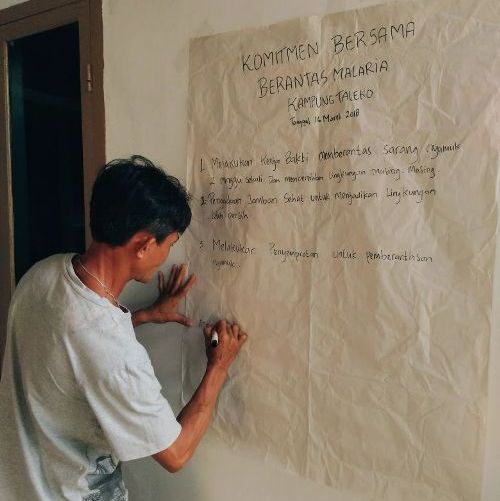 KOMITMEN BERSAMA
BERANTAS MALARIA
KAMPUNG TALEKO
Tanggal, 16 Maret 2018
1. Melakukan Kerja Bakti memberantas Sarang Nyamuk
2 minggu sekali dan membersihkan lingkungan masing-masing
2. Pengadaan Jamban Sehat untuk menjadikan Lingkungan
lebih bersih
3. Melakukan Penyemprotan untuk pemberantasan
nyamuk.